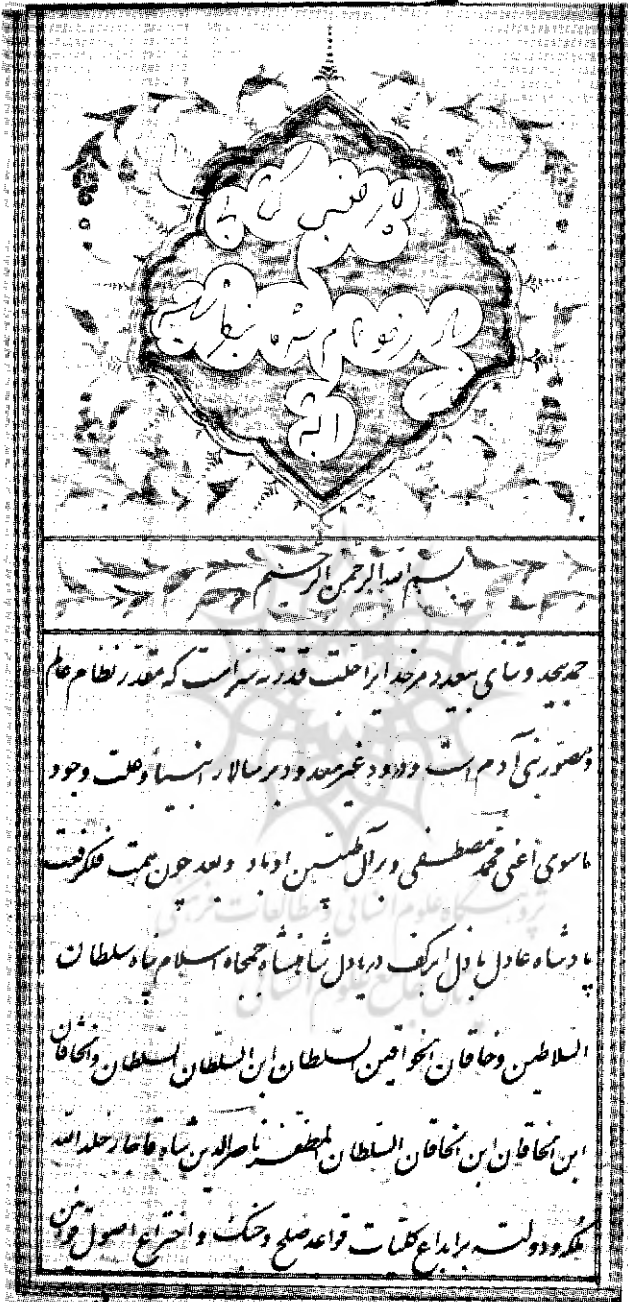 بسم الله الرحمن الرحیم
حمد بیحد و ثنای بیعدد مر خدایرا جلت قدرته سزاست که مقدر نظام عالم
و مصور بنی آدم است و درود غیر معدود بر سالار انبیا و علت وجود
ماسوی اعنی محمد مصطفی و بر آل طیبین او باد و بعد چون همت فلک رفعت
پادشاه عادل باذل ابر کف دریا دل شاهنشاه جمجاه اسلام پناه سلطان
السلاطین و خاقان الخواقین السلطان ابن السلطان السلطان والخاقان
ابن الخاقان ابن الخاقان السلطان المظفر ناصرالدین شاه قاجار خلد الله
ملکه و دولته بر ابداع کلیات قواعد صلح و جنک و اختراع اصول قوانین
پژوهشگاه علوم انسانی و مطالعات فرهنگی
پرتال جامع علوم انسانی